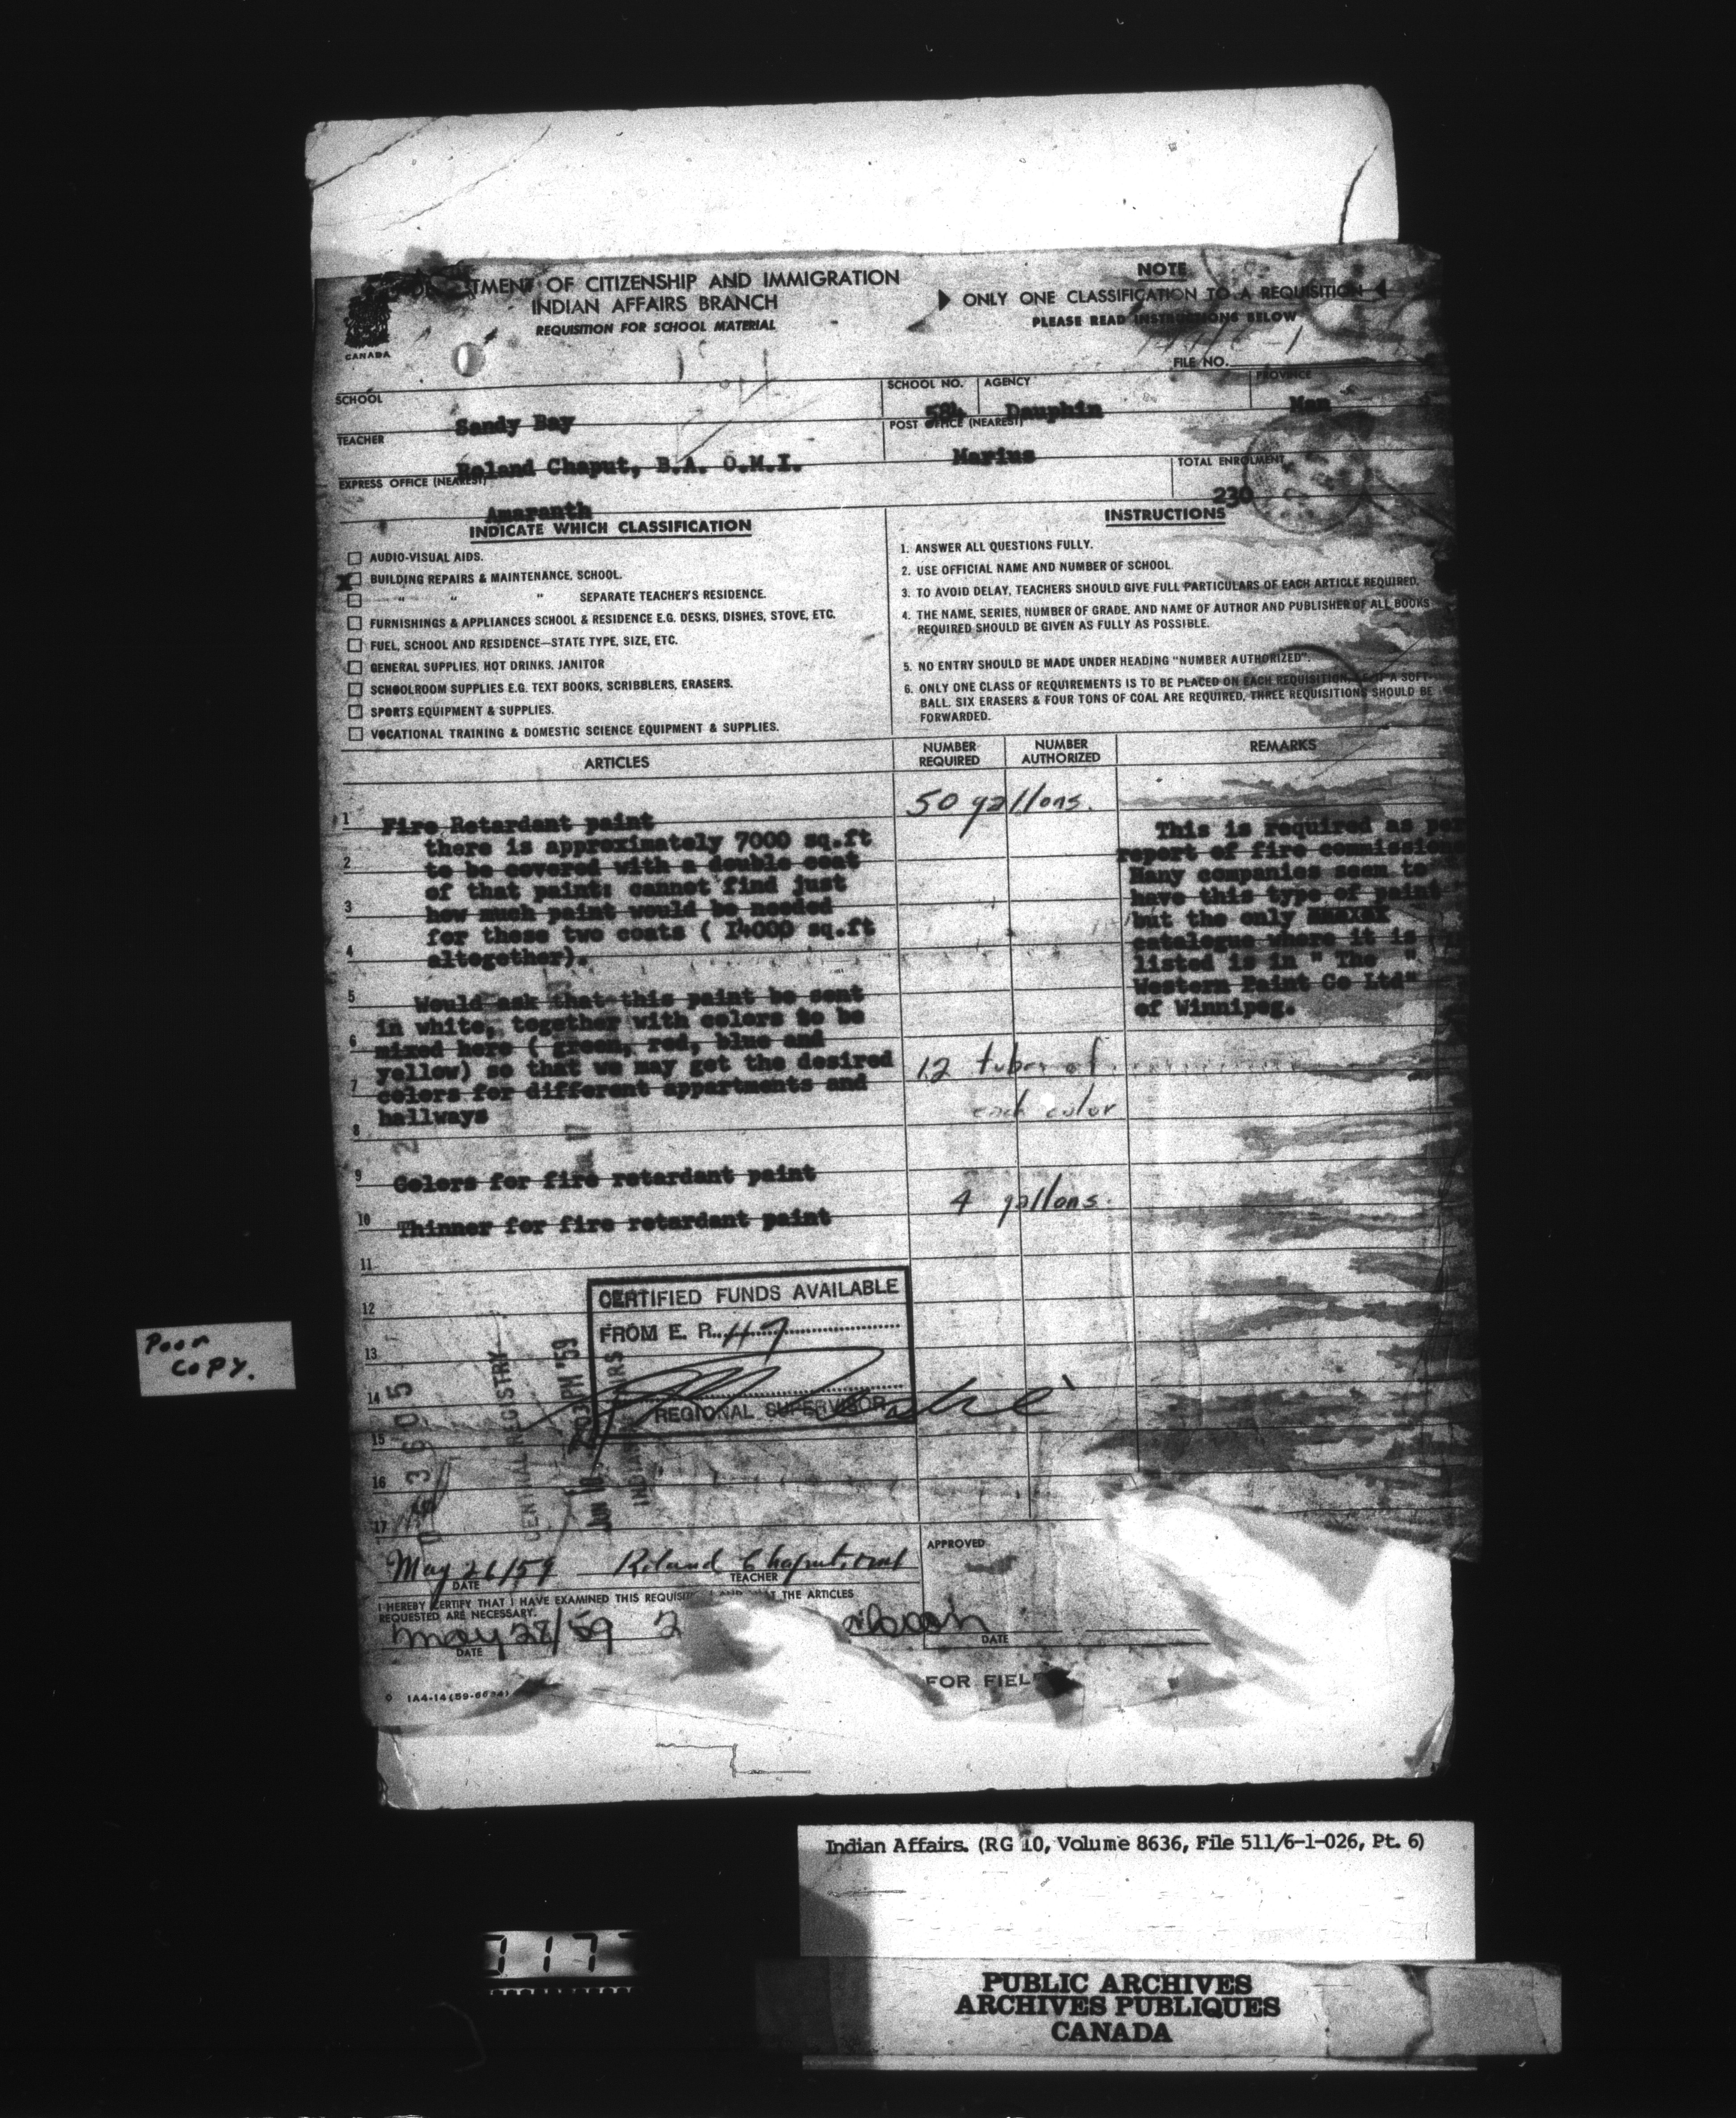 TMENT OF CITIZENSHIP AND IMMIGRATION
INDIAN AFFAIRS BRANCH
REQUISITION FOR SCHOOL MATERIAL
CANADA
NOTE
ONLY ONE CLASSIFICATION TO A REQUISITION
PLEASE READ INSTRUCTIONS BELOW
FILE NO.
SCHOOL
Sandy Bay
SCHOOL NO.
584
AGENCY
Dauphin
PROVINCE
Man
TEACHER
Roland Chaput, B.A. O.M.I.
POST OFFICE (NEAREST)
Marius
EXPRESS OFFICE (NEAREST)
Amaranth
TOTAL ENROLMENT
230
INDICATE WHICH CLASSIFICATION
AUDIO-VISUAL AIDS.
X BUILDING REPAIRS & MAINTENANCE, SCHOOL.
" " " SEPARATE TEACHER'S RESIDENCE.
FURNISHINGS & APPLIANCES SCHOOL & RESIDENCE E.G. DESKS, DISHES, STOVE, ETC.
FUEL, SCHOOL AND RESIDENCE—STATE TYPE, SIZE, ETC.
GENERAL SUPPLIES, HOT DRINKS, JANITOR
SCHOOLROOM SUPPLIES E.G. TEXT BOOKS, SCRIBBLERS, ERASERS.
SPORTS EQUIPMENT & SUPPLIES.
VOCATIONAL TRAINING & DOMESTIC SCIENCE EQUIPMENT & SUPPLIES.
INSTRUCTIONS
1. ANSWER ALL QUESTIONS FULLY.
2. USE OFFICIAL NAME AND NUMBER OF SCHOOL.
3. TO AVOID DELAY, TEACHERS SHOULD GIVE FULL PARTICULARS OF EACH ARTICLE REQUIRED.
4. THE NAME, SERIES, NUMBER OF GRADE, AND NAME OF AUTHOR AND PUBLISHER OF ALL BOOKS
REQUIRED SHOULD BE GIVEN AS FULLY AS POSSIBLE.
5. NO ENTRY SHOULD BE MADE UNDER HEADING "NUMBER AUTHORIZED".
6. ONLY ONE CLASS OF REQUIREMENTS IS TO BE PLACED ON EACH REQUISITION, I.E. IF A SOFT-
BALL, SIX ERASERS & FOUR TONS OF COAL ARE REQUIRED, THREE REQUISITIONS SHOULD BE
FORWARDED.
ARTICLES
NUMBER
REQUIRED
NUMBER
AUTHORIZED
REMARKS
50 gallons.
1 Fire Retardant paint
there is approximately 7000 sq.ft
2 to be covered with a double coat
of that paint: cannot find just
3 how much paint would be needed
for these two coats ( 14000 sq.ft
4 altogether).
5 Would ask that this paint be sent
in white, together with colors to be
6 mixed here ( green, red, blue and
yellow) so that we may get the desired
7 colors for different appartments and
hallways
8
This is required as per
report of fire commission
Many companies seem to
have this type of paint
but the only
catalogue where it is
listed is in " The "
Western Paint Co Ltd"
of Winnipeg.
12 tubes of
each color
9 Colors for fire retardant paint
4 gallons.
10 Thinner for fire retardant paint
11
12
13
14
15
16
17
CERTIFIED FUNDS AVAILABLE
FROM E. R. H7
REGIONAL SUPERVISOR
CENTRAL REGISTRY
JUN 10
PM '59
May 26/59
DATE
Roland Chaput, omi
TEACHER
I HEREBY CERTIFY THAT I HAVE EXAMINED THIS REQUISIT AND THAT THE ARTICLES
REQUESTED ARE NECESSARY.
May 28/59
DATE
APPROVED
DATE
FOR FIEL
Poor
COPY.
Indian Affairs. (RG 10, Volume 8636, File 511/6-1-026, Pt. 6)
PUBLIC ARCHIVES
ARCHIVES PUBLIQUES
CANADA